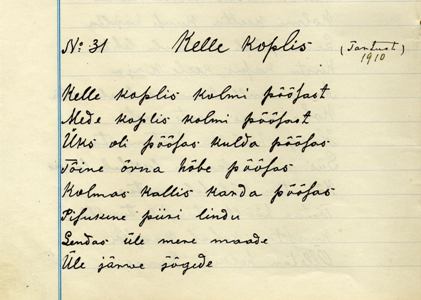 No: 31 Kelle koplis (Tartust) 1910
Kelle koplis kolmi põõsast
Mede koplis kolmi põõsast
Üks oli põõsas kulda põõsas
Tõine õrna hõbe põõsas
Kolmas kallis karda põõsas
Pisukene piiri lindu
Lendas üle mere maade
Üle järwe jõgede